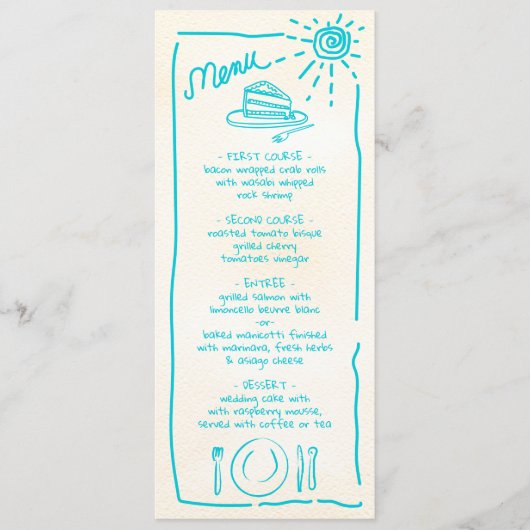 Menu
- FIRST COURSE -
bacon wrapped crab rolls
with wasabi whipped
rock shrimp
- SECOND COURSE -
roasted tomato bisque
grilled cherry
tomatoes vinegar
- ENTRÉE -
grilled salmon with
limoncello beurre blanc
-or-
baked manicotti finished
with marinara, fresh herbs
& asiago cheese
- DESSERT -
wedding cake with
with raspberry mousse,
served with coffee or tea